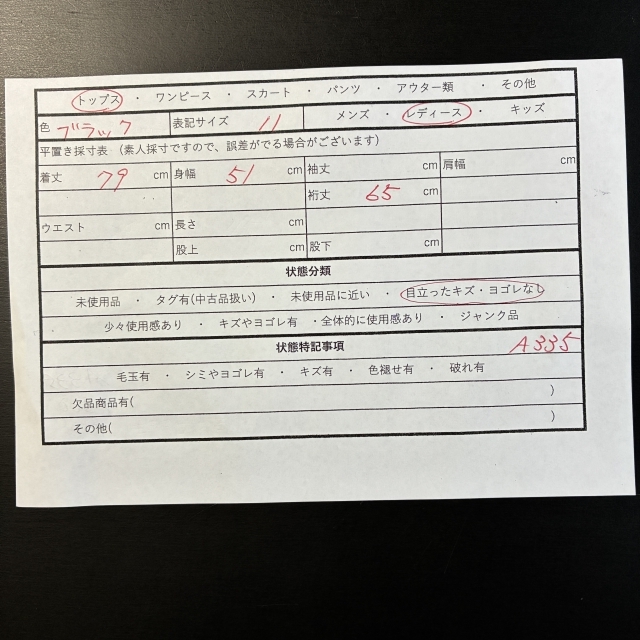 トップス ・ ワンピース ・ スカート ・ パンツ ・ アウター類 ・ その他
色 ブラック 表記サイズ 11 メンズ ・ レディース ・ キッズ
平置き採寸表 (素人採寸ですので、誤差がでる場合がございます)
着丈 79 cm 身幅 51 cm 袖丈 cm 肩幅 cm
裄丈 65 cm
ウエスト cm 長さ cm
股上 cm 股下 cm
状態分類
未使用品 ・ タグ有(中古品扱い) ・ 未使用品に近い ・ 目立ったキズ・ヨゴレなし
少々使用感あり ・ キズやヨゴレ有 ・全体的に使用感あり ・ ジャンク品
状態特記事項 A335
毛玉有 ・ シミやヨゴレ有 ・ キズ有 ・ 色褪せ有 ・ 破れ有
欠品商品有( )
その他( )